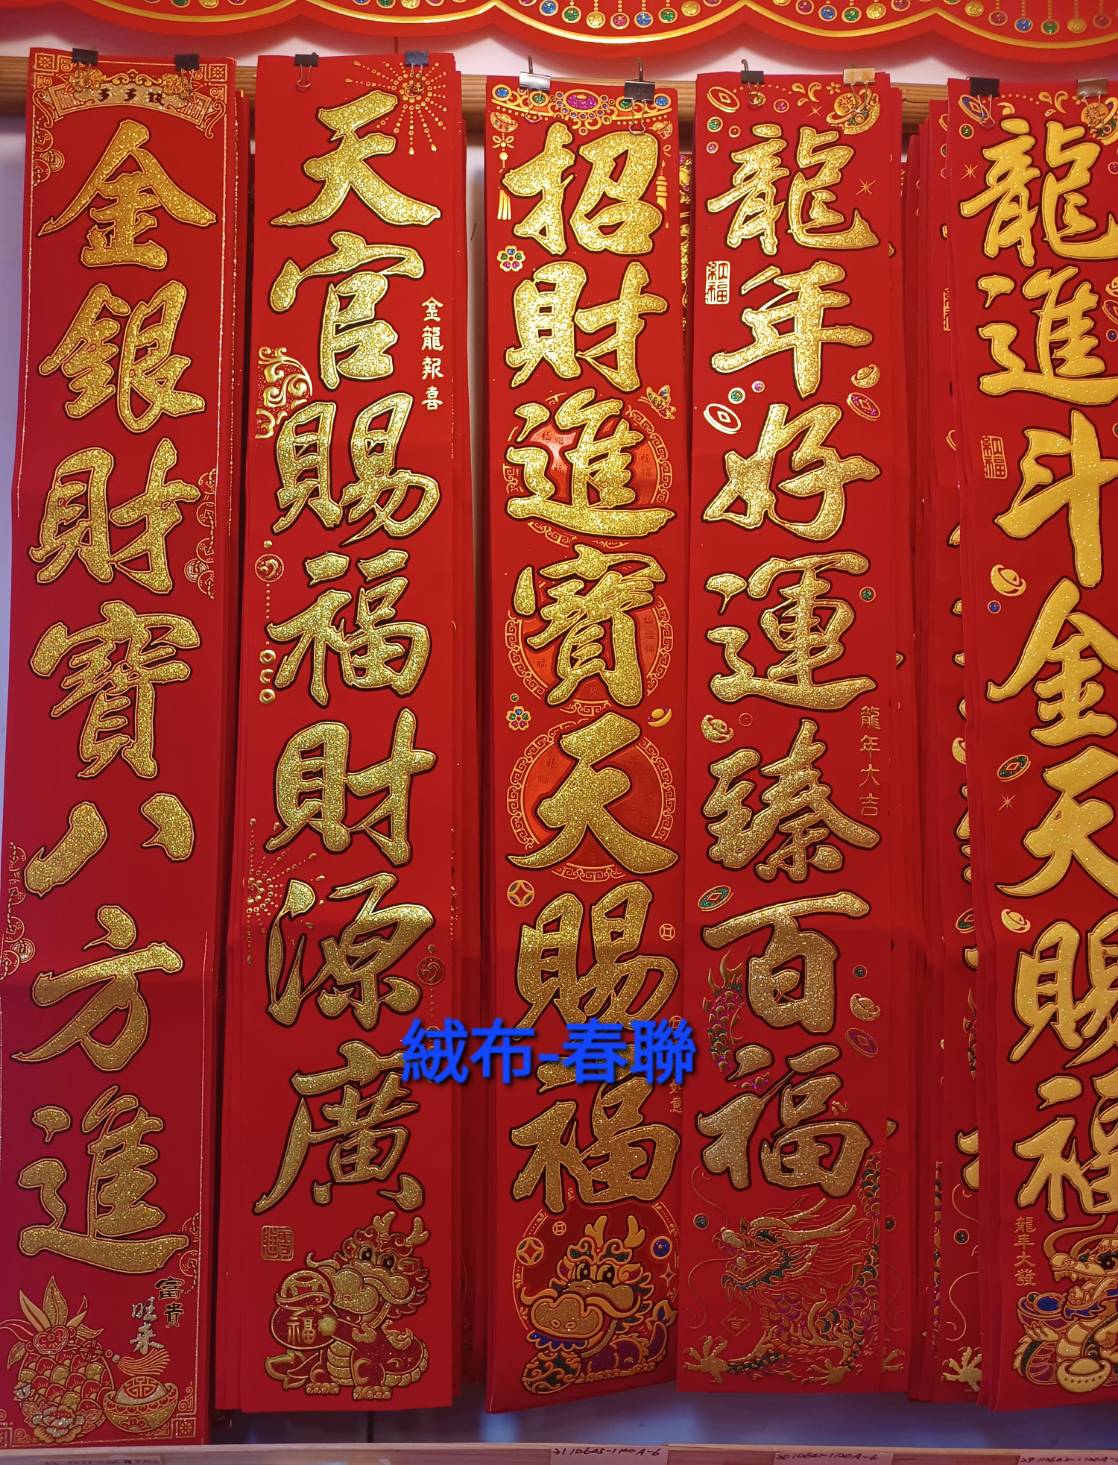 多多益
金銀財寶八方進
富貴
旺來
天官賜福財源廣
金龍報喜
福
招財進寶天賜福
龍年好運臻百福
紅福
龍年大吉
龍進斗金天賜福
紅福
龍年大發
絨布-春聯